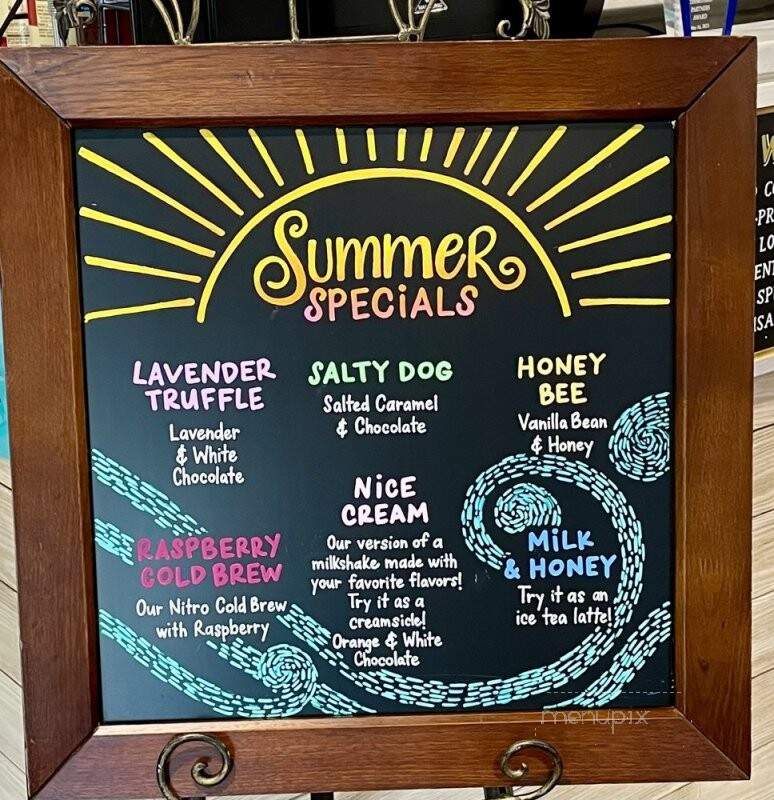 PARTNERS
AWARD
Summer
SPECiALS
LAVENDER
TRUFFLE
Lavender
& White
Chocolate
SALTY DOG
Salted Caramel
& Chocolate
HONEY
BEE
Vanilla Bean
& Honey
NiCE
CREAM
Our version of a
milkshake made with
your favorite flavors!
Try it as a
creamsicle!
Orange & White
Chocolate
RASPBERRY
COLD BREW
Our Nitro Cold Brew
with Raspberry
MiLK
& HONEY
Try it as an
ice tea latte!
menupix